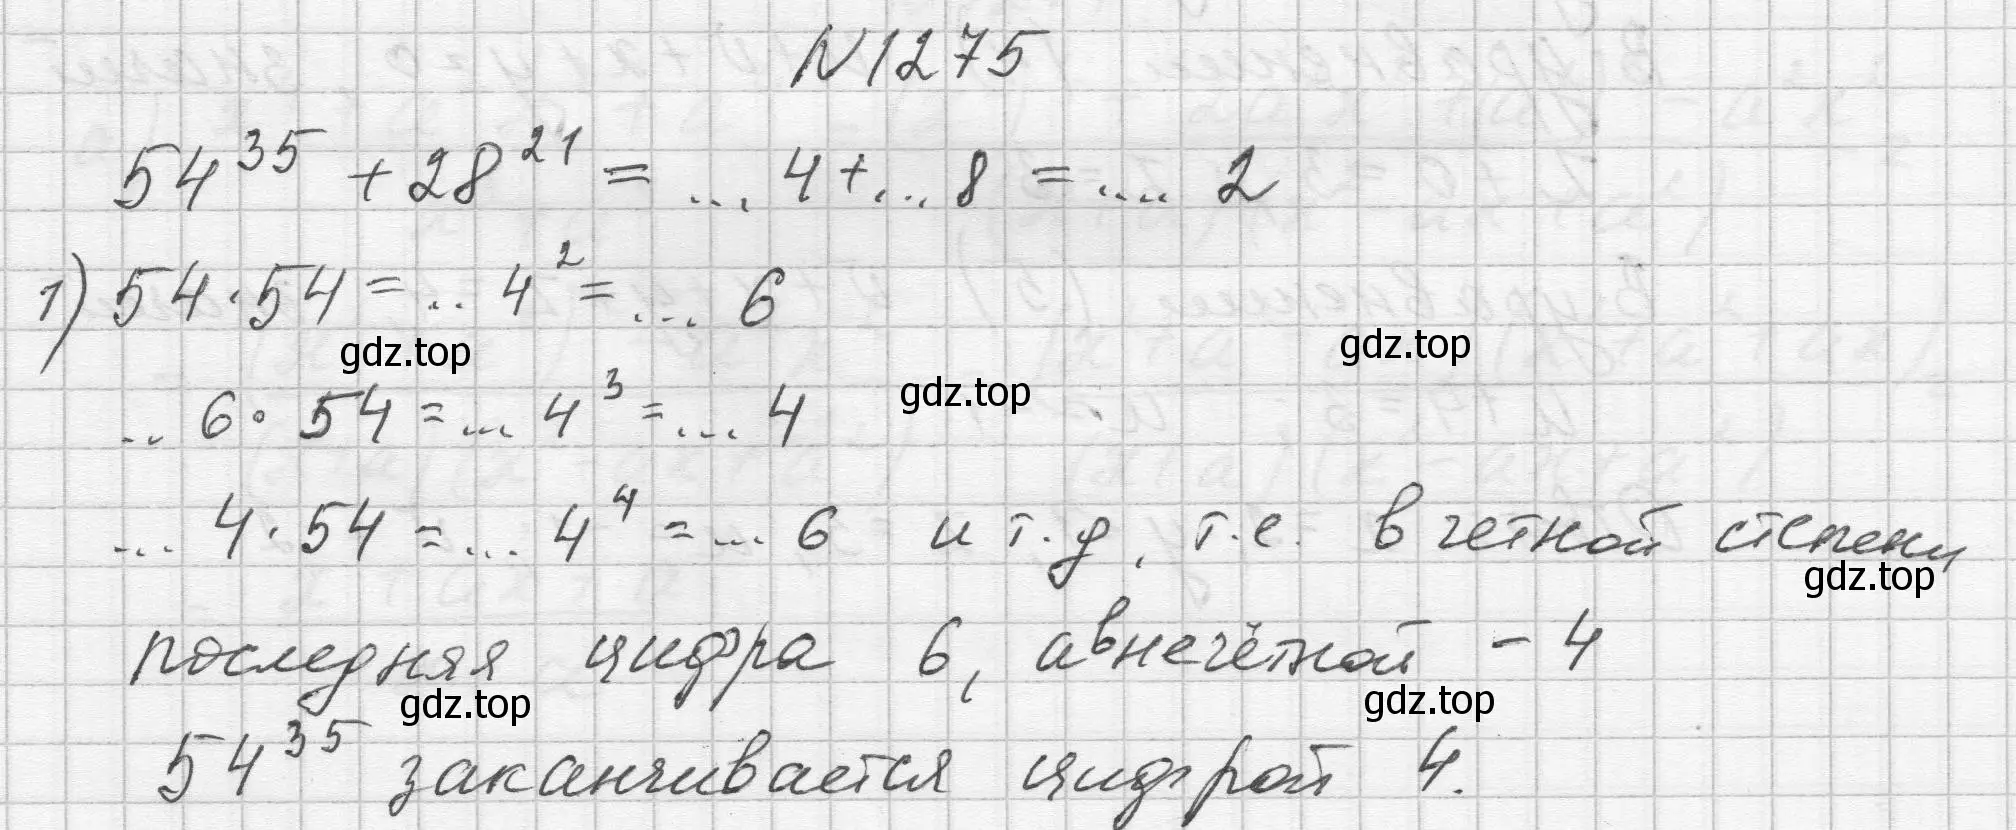 N1275
54³⁵ + 28²¹ = ... 4 + ... 8 = .... 2
1) 54 · 54 = .. 4² = ... 6
gdz.top gdz.top
gdz.top
.. 6 · 54 = ... 4³ = ... 4
... 4 · 54 = ... 4⁴ = ... 6 и т.д, т.е. в четной степени
gdz.top
последняя цифра 6, а в нечётной - 4
gdz.top gdz.top
54³⁵ заканчивается цифрой 4.